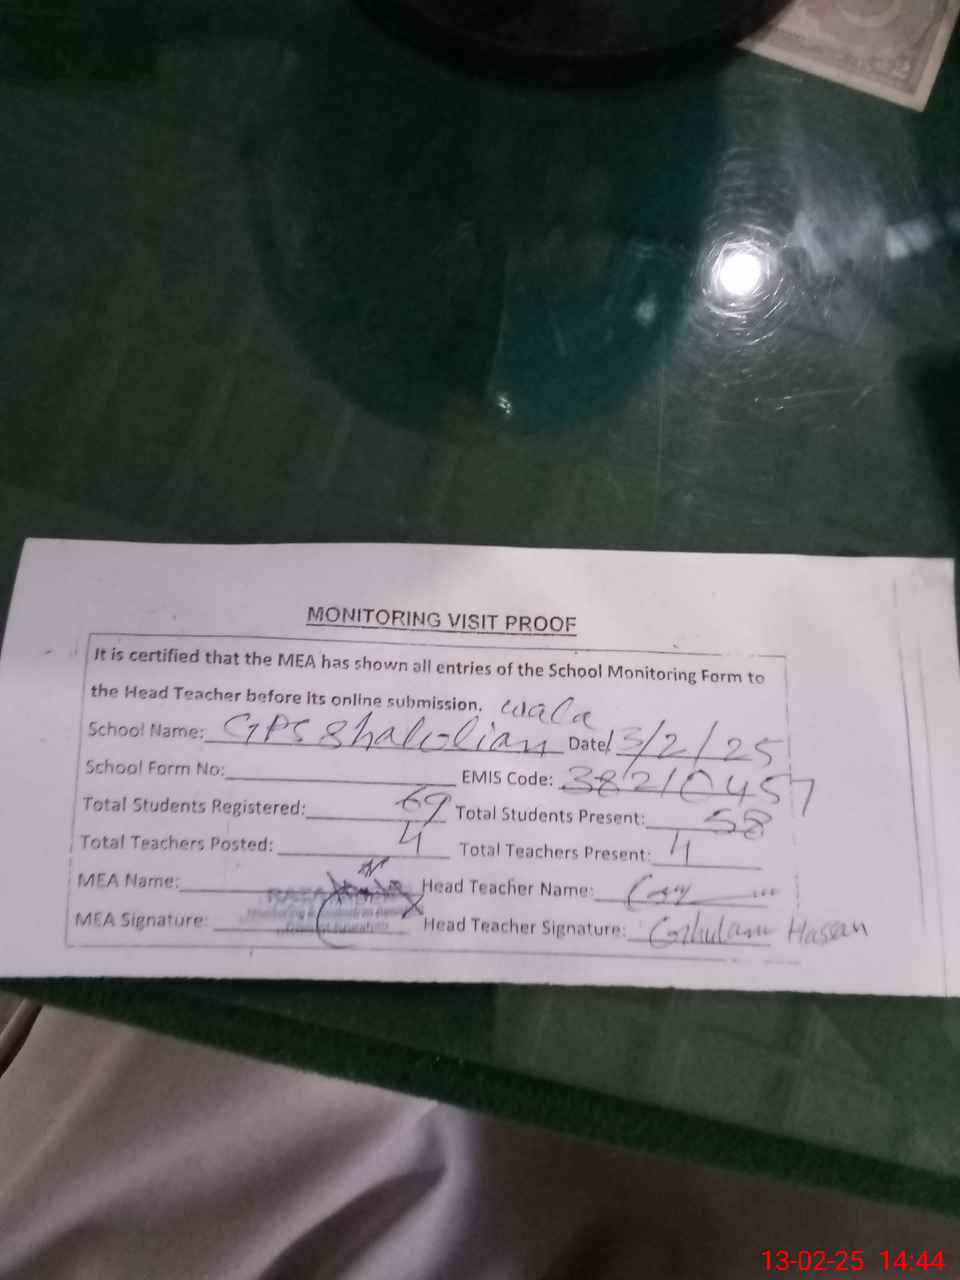 MONITORING VISIT PROOF
It is certified that the MEA has shown all entries of the School Monitoring Form to
the Head Teacher before its online submission. wala
School Name: GPS Date: 13/2/25
School Form No: EMIS Code: 38210457
Total Students Registered: 69 Total Students Present: 58
Total Teachers Posted: 4 Total Teachers Present: 4
MEA Name: Head Teacher Name:
MEA Signature: Head Teacher Signature: Ghulam Hasan
13-02-25 14:44